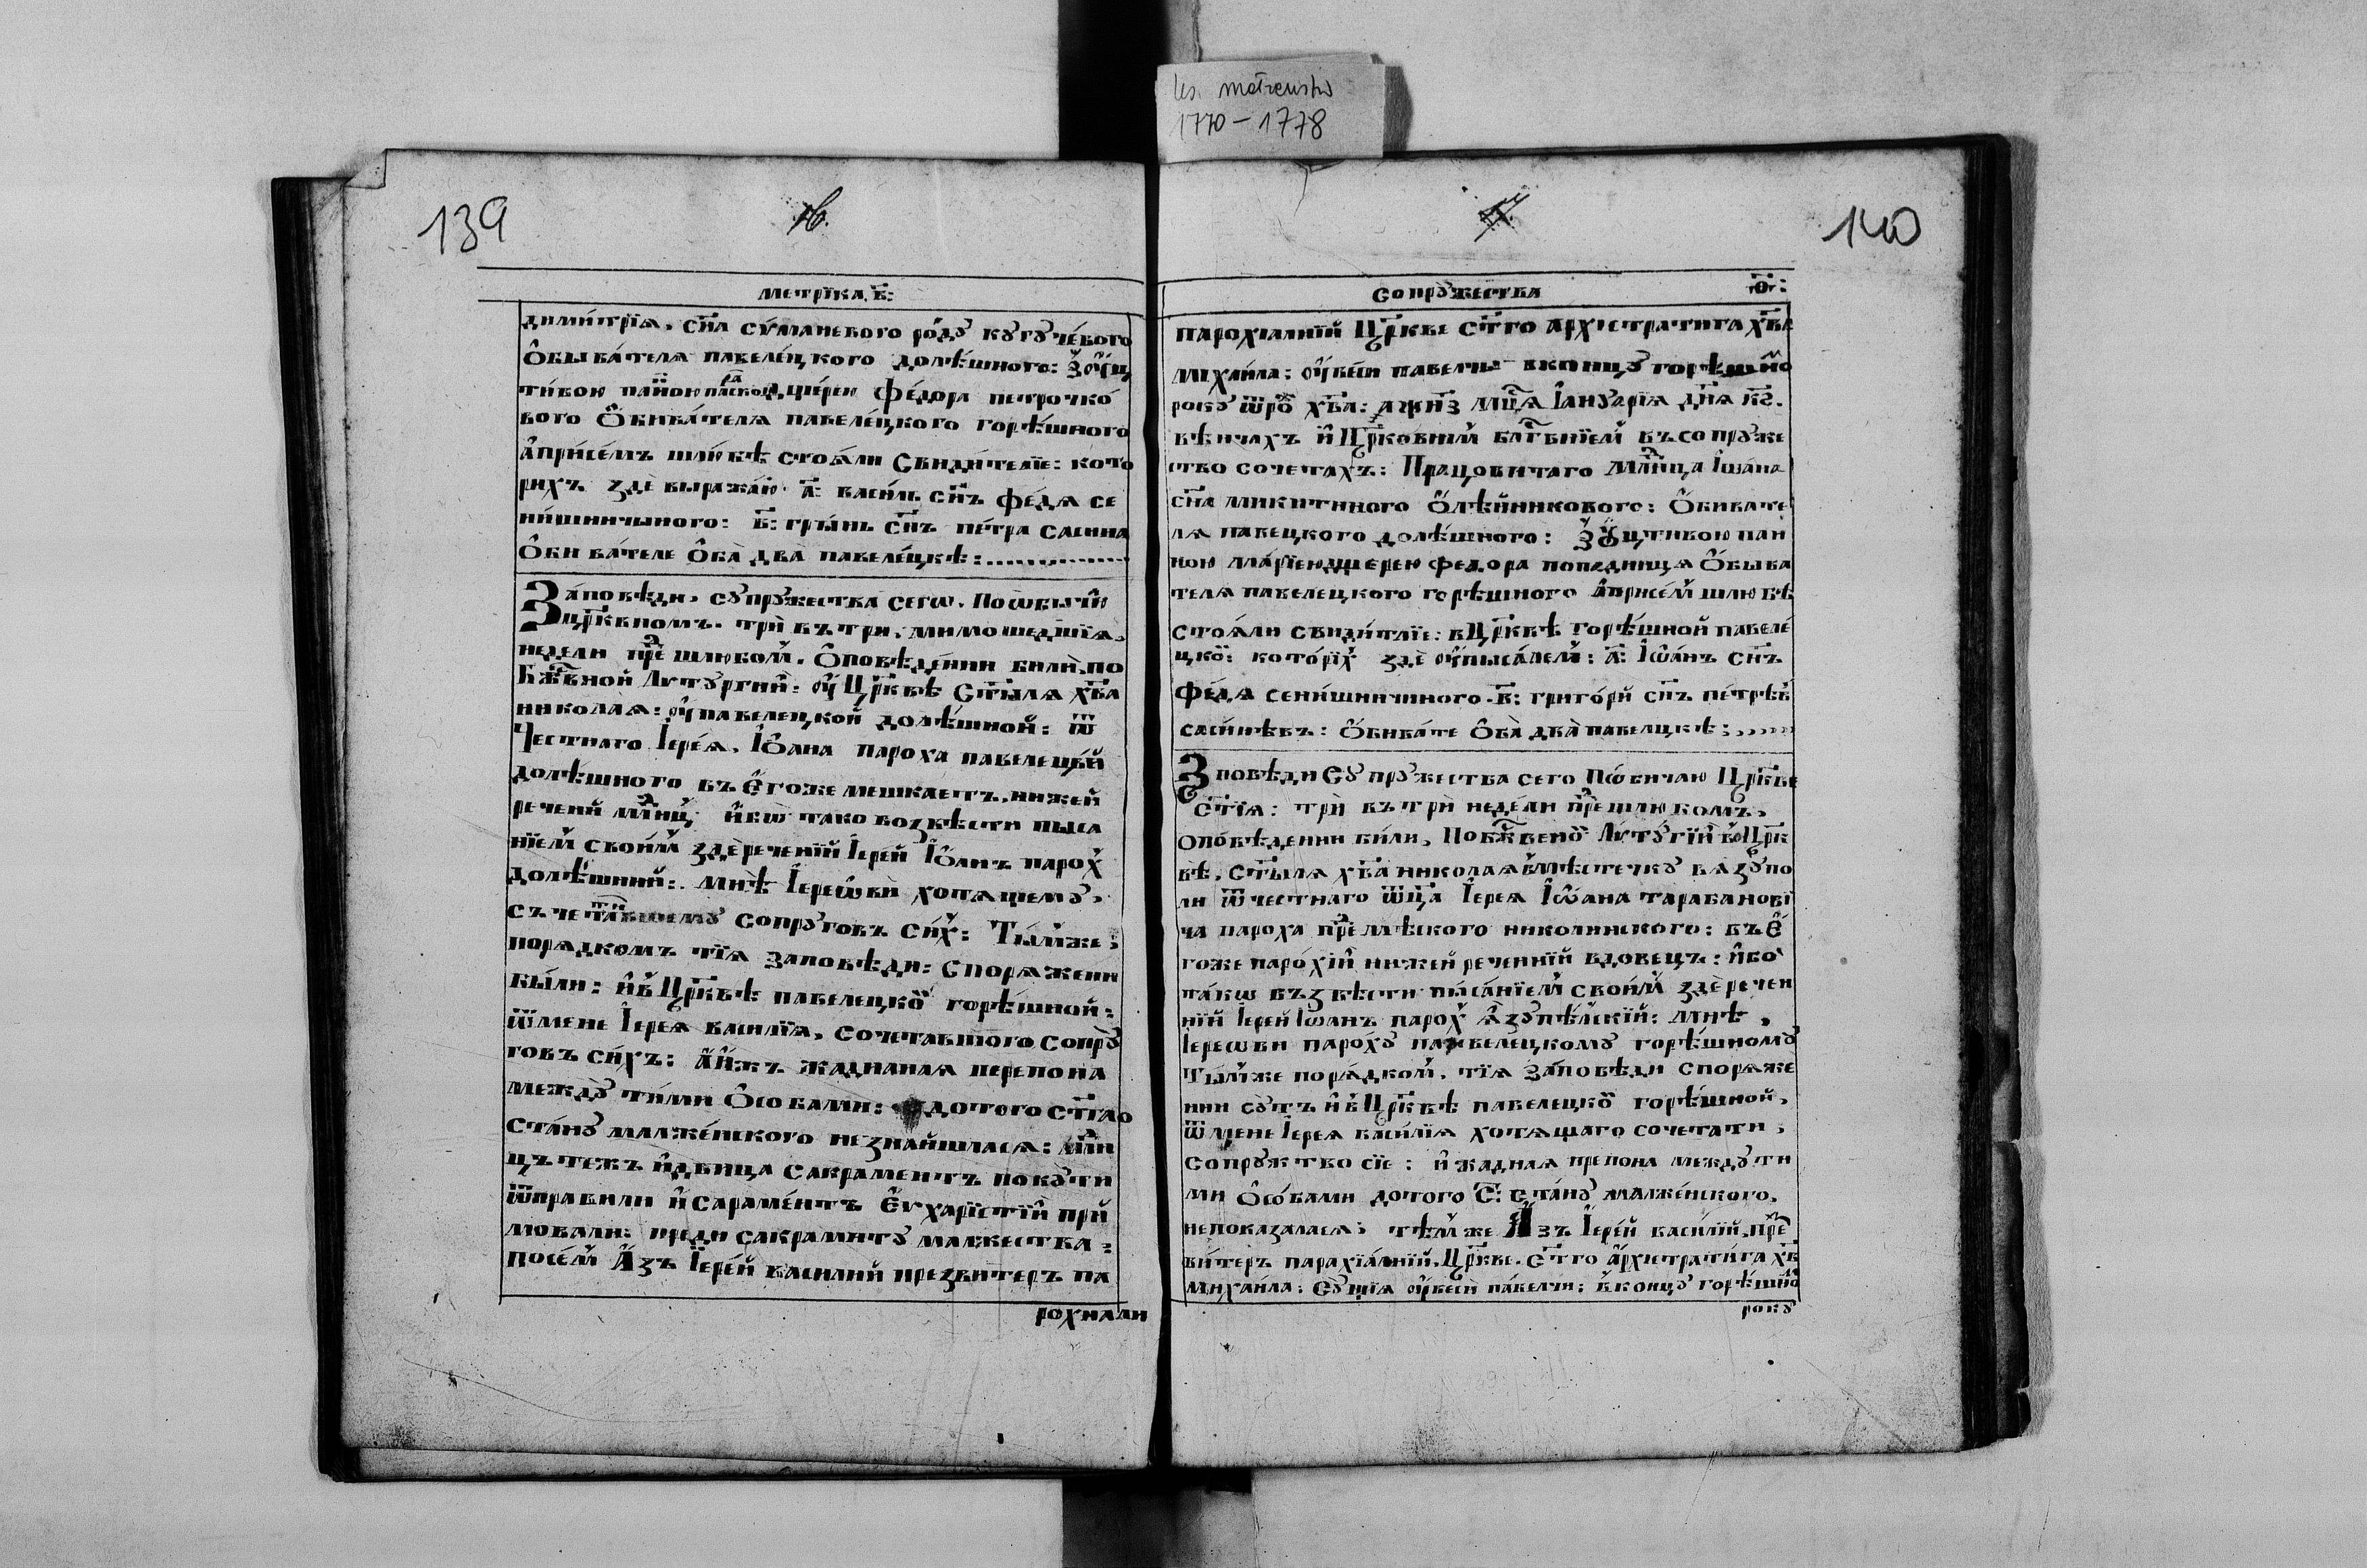 les. małżeństw
1770-1778
139
16.
Метрїка. в҃:
димитрїя, сн҃а суманевого родꙋ кꙋгꙋчевого
Ѻбывателя павелецкого долѣшного: З оучц
тивою панною паскою дщерею Федора петрочко
вого Ѻбивателя павелецкого горѣшного
априсемъ шлюбѣ стояли Свидителїе: кото
рихъ зде выражаю а҃: василь сн҃ъ федя се
нишинчыного: в҃: гринь сн҃ъ петра сасина
Ѻбивателе Ѻба два павелецкѣ:
Заповѣди, сꙋпрꙋжества сегѡ. Поѡбычїю
цр҃ковномъ. три въ три, мимошедшїя,
недели пре шлюбом. Ѻповѣдении били, по
Бж҃твной Литꙋргий: оу Цр҃квѣ Ст҃ыля хв҃а
николая: оу павелецкой долѣшной: ѿ
Честнаго Іерея, Іѡана пароха павелецкѣй
долѣшного въ егоже мешкаетъ, нижей
речений млнц ибѡ тако возвѣсти пыса
нїем своим здереченїй Іерей Іѡанъ парох
долѣшний: мнѣ Іереѡви хотящемꙋ,
съчетавшемꙋ сопрꙋговъ сих: Тымже,
порядкомъ тїя заповѣди: споряжени
были: ив Цр҃квѣ павелецкѡ горѣшной:
ѿмене Іерея василїя, сочетавшого сопрꙋ
говъ сихъ: аижъ жадианая перепона
междꙋ тими Ѻсобами: дотого ст҃гао
станꙋ малженского незнайшлася: млн
цъ тежъ идвица сакраментъ покꙋти
ѿправили и сараментъ Еѵхарїстїи прй
мовали: преди сакраминтꙋ малжества:
посем Азъ Іерей василий презвитеръ па
рохиали
140
17.
Сопрꙋжества
о҃:
парохїалнїй Цр҃кве ст҃го архїстратига хв҃а
міхаила: оу веси павелчи вконцꙋ горѣшнѡ
рокꙋ ѿрѡ хв҃а: аѱиз мцⷭ҇а Іанꙋарїя дня кѕ.
вѣнчахъ и Цр҃ковним блгⷭ҇внїем въ сопрꙋже
ство сочетахъ: Працовитаго млнца Іѡана
сн҃а микитиного Ѻлѣйникового: Ѻбивате
ля павецкого долѣшного: З Ꙋцтивою пан
ною марїею дщерею федора попадница Ѻбыва
теля павелецкого горѣшного априсем шлюбѣ
стояли свидитлїе: в Цр҃квѣ горѣшной павеле
цкѡ: которїх зде оуписалем: а҃: Іѡанъ сн҃ъ
федя сенишничиного. в҃: григорй сн҃ъ петрѣв
сасинѣвъ: Ѻбивате Ѻба два павелцкѣ:
Зповѣди Сꙋпрꙋжества сего Пѡбичаю Цр҃кве
ст҃їя: три въ три недели пре шлюбомъ,
оповѣдении били, По бж҃твенѡ Литꙋгїй вѡ Цр҃к
вѣ, ст҃ыля хв҃а николая в мѣстечкꙋ вязꙋпо
ли ѿ честнаго ѿца Іерея Іѡана тарабанови
ча пароха премѣского николинского: въ е
гоже парохїи нижей реченнїй вдовецъ: ибо
такѡ възвѣсти писанїем своим здеречен
нїй Іерей Іѡанъ парох язꙋпѣлскїй: мнѣ,
Іереѡви парохꙋ павелецкомꙋ горѣшномꙋ
Тымже порядком, тїя заповѣди споряже
ни сꙋтъ и в Цр҃квѣ павелецкѡ горѣшной,
ѿмене Іерея василїя хотящаго сочетати,
сопрꙋжтво сїе: и жадная препона междꙋ ти
ми Ѻсобами дотого С҃: станꙋ малженского,
непоказалася: тѣмже Азъ Іерей василїй, пре
витеръ парахїалнїй, Цр҃кве. Ст҃го архистратига хв҃
михаила: Сꙋщїя оу веси павелчи: вконцꙋ горѣшнѡ
рокꙋ